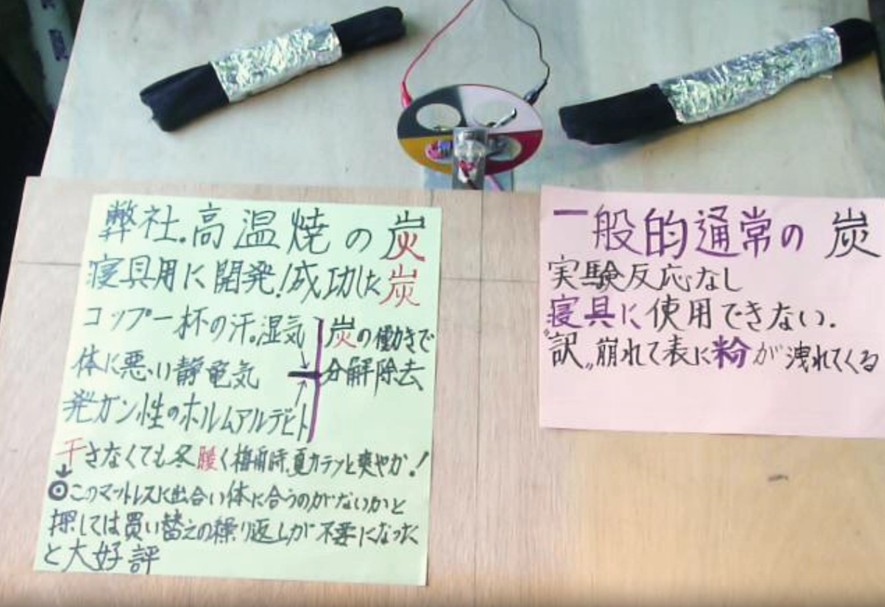 弊社.高温焼の炭
寝具用に開発!成功した炭
コップ一杯の汗。湿気
体に悪い静電気
発ガン性のホルムアルデヒト
炭の働きで
分解除去
干さなくても冬暖く梅雨時、夏カラッと爽やか!
◎このマットレスに出合い体に合うのがないかと
探しては買い替えの繰り返しが不要になった
と大好評
一般的通常の炭
実験反応なし
寝具に使用できない.
"訳„崩れて表に粉が洩れてくる